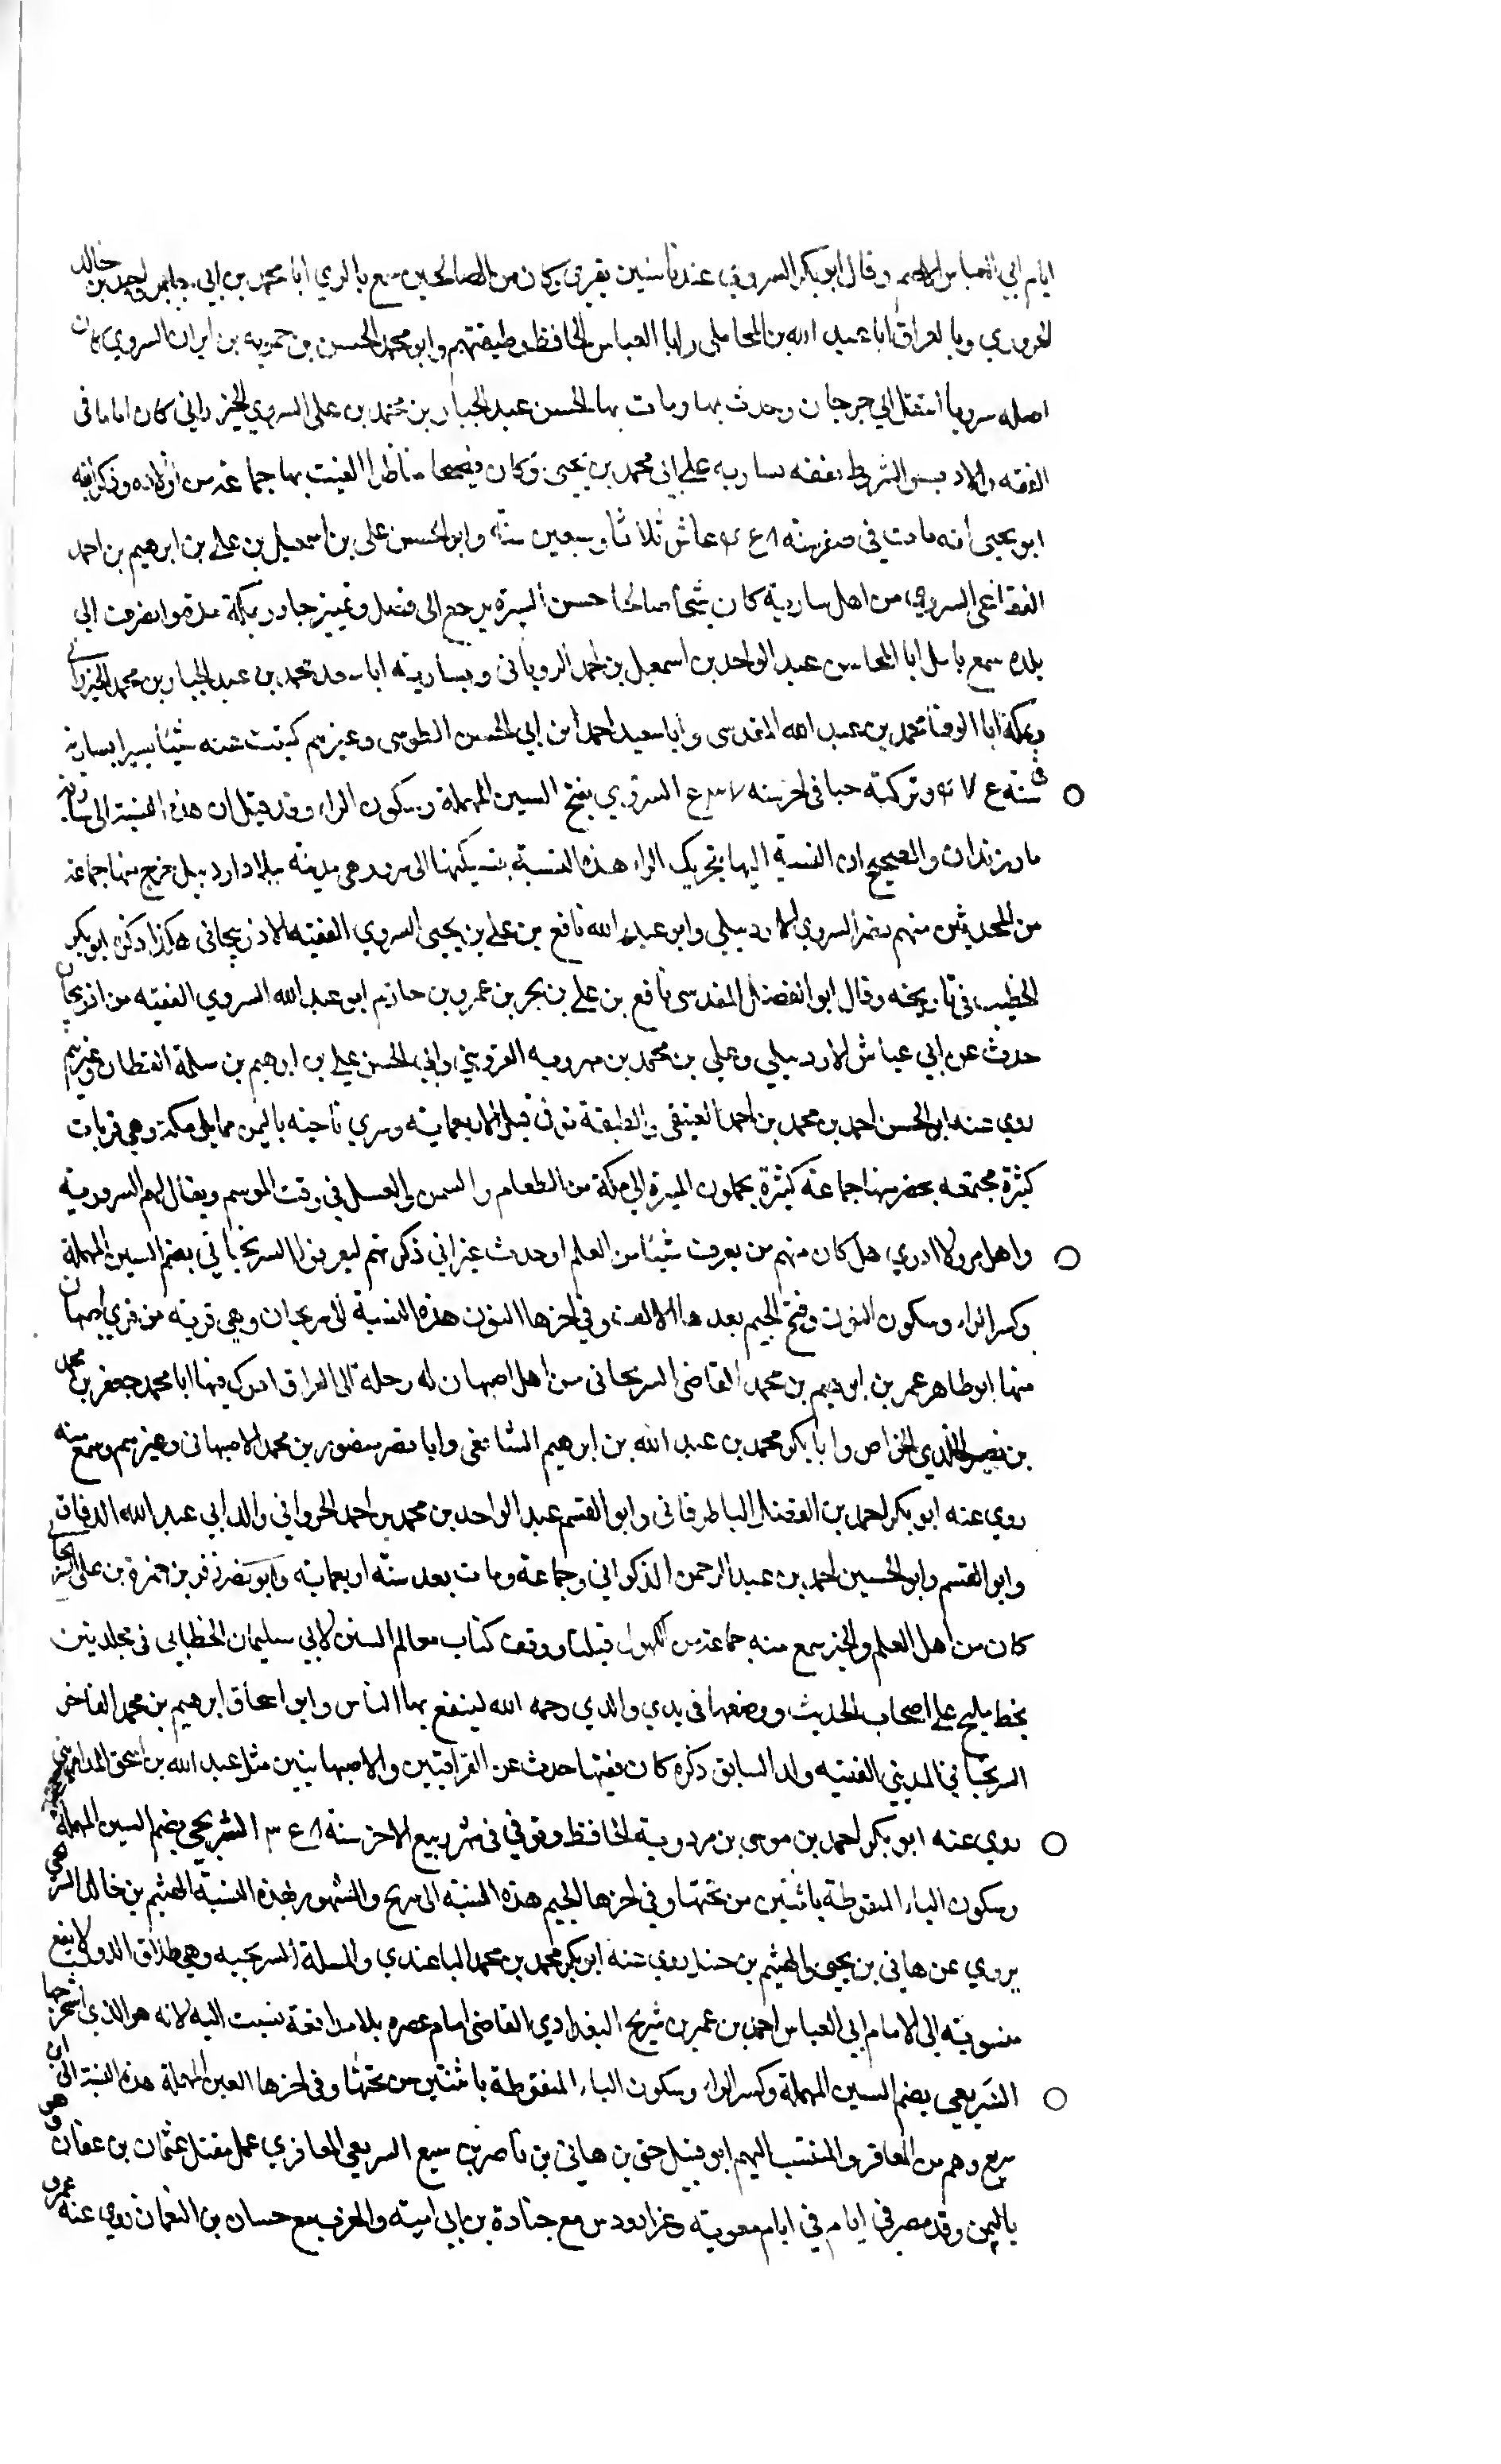 ايام ابي العباس الاصم وقال ابو بكر السروي عندنا سنين يقري وكان من الصالحين سمع بالري ابا محمد بن ابي حاتم واحمد بن خالد
الحروري وبالعراق ابا عبد الله بن المحاملي وابا العباس الحافظ وطبقتهم وابو محمد الحسن بن حمويه بن ايران السروي كان
اصله سرويا انتقل الى جرجان وحدث بها ومات بها الحسن عبد الجبار بن محمد بن علي السروي الخيزراني كان اماما في
الفقه والادب والشروط تفقه بساريه على ابي محمد بن يحيى وكان فصيحا مناظرا الفيت بها جماعة من اولاده وذكر ابنه
ابو يحيى انه مات في صفر سنة عاش ثلاثا وسبعين سنة وابو الحسن علي بن اسمعيل بن علي بن ابرهيم بن احمد
الفقاعي السروي من اهل سارية كان شيخا صالحا حسن السيرة يرجع الى فضل وتمييز جاور بمكة مدة وانصرف الى
بلده سمع بامل ابا المحاسن عبد الواحد بن اسمعيل بن احمد الروياني وبسارية ابا سعد محمد بن عبد الجبار بن محمد الخيزراني
وبمكة ابا الوفا محمد بن عبد الله المقدسي وابا سعيد احمد ابن ابي الحسن الطوسي وغيرهم كتبت عنه شيئا يسيرا بسارية
في سنة وتركته حيا في اخر سنه السروي بفتح السين المهملة وسكون الراء وقد قيل ان هذه النسبة الى سارية
مازندران والصحيح ان النسبة اليها بتحريك الراء هذه النسبة بتسكينها الى سرو وهي مدينة ببلاد اردبيل خرج منها جماعة
من المحدثين منهم نصر السروي الاردبيلي وابو عبد الله نافع بن علي بن يحيى السروي الفقيه الاذربيجاني هكذا ذكره ابو بكر
الخطيب في تاريخه وقال ابو الفضل المقدسي نافع بن علي بن بحر بن عمرو بن حازم ابو عبد الله السروي الفقيه من اذربيجان
حدث عن ابي عياش الاردبيلي وعلي بن محمد بن مهرويه القزويني وابي الحسن علي بن ابرهيم بن سلمة القطان وغيرهم
روي عنه ابو الحسن احمد بن محمد بن احمد العتيقي والطبقة توفي قبل الاربعماية وسري ناحية باليمن مما يلي مكة وهي قريات
كثيرة مجتمعه يحضر منها جماعة كثيرة يحملون الميرة الى مكة من الطعام والسمن والعسل في وقت الموسم ويقال لهم السروية
واهل سرو لا ادري هل كان منهم من يعرف شيئا من العلم او حدث غير اني ذكرتهم ليعرفوا السرنجاني بضم السين المهملة
وكسر الراء وسكون النون وفتح الجيم بعدها الالف وفي اخرها النون هذه النسبة الى سرنجان وهي قرية من قري اصبهان
منها ابو طاهر عمر بن ابرهيم بن محمد القاضي السرنجاني من اهل اصبهان له رحلة الى العراق ادرك فيها ابا محمد جعفر بن محمد
بن نصير الخلدي الخواص وابا بكر محمد بن عبد الله بن ابرهيم الشافعي وابا نصر منصور بن محمد الاصبهاني وغيرهم وسمع منه
روي عنه ابو بكر احمد بن الفضل الباطرقاني وابو القسم عبد الواحد بن محمد بن احمد والد ابي عبد الله الدقاق
وابو القسم وابو الحسين احمد بن عبد الرحمن الذكواني وجماعة ومات بعد سنة اربعماية وابو نصر بن حمزة بن علي السرنجاني
كان من اهل العلم والخير سمع منه جماعة من الكهول قبلنا ووقف كتاب معالم السنن لابي سليمان الخطابي في مجلدتين
بخط مليح على اصحاب الحديث ووضعها في يدي والدي رحمه الله لينتفع بها الناس وابو اسحاق ابرهيم بن محمد الفاخر
السرنجاني المديني الفقيه ولد السابق ذكره كان فقيها حدث عن العراقيين والاصبهانيين مثل عبد الله بن اسحق المدايني
روي عنه ابو بكر احمد بن موسى بن مردوية الحافظ وتوفي في شهر ربيع الاخر سنة السريجي بضم السين المهملة
وسكون الياء المنقوطة باثنتين من تحتها وفي اخرها الجيم هذه النسبة الى سريج والمشهور بهذه النسبة الهيثم بن خالد
يروي عن هاني بن يحيى والهيثم بن روي عنه ابو بكر محمد بن محمد الباغندي والمسلة السريجيه وهي طلاق الدور لا يقع
منسوبة الى الامام ابي العباس احمد بن عمر بن سريج البغدادي القاضي امام عصره بلا مدافعة نسبت اليه لانه هو الذي استخرجها
السريعي بضم السين المهملة وكسر الراء وسكون الياء المنقوطة باثنتين من تحتها وفي اخرها العين المهملة هذه النسبة الى
سريع وهم من المعافر والمنتسب اليهم ابو قبيل حيي بن هاني بن ناضر بن السريعي المعافري عمل مقتل عثمان بن عفان وهو
باليمن وقدم مصر في ايام في ايام معوية وغزا رودس مع جنادة بن ابي امية والمغرب مع حسان بن النعمان روي عنه عمرو